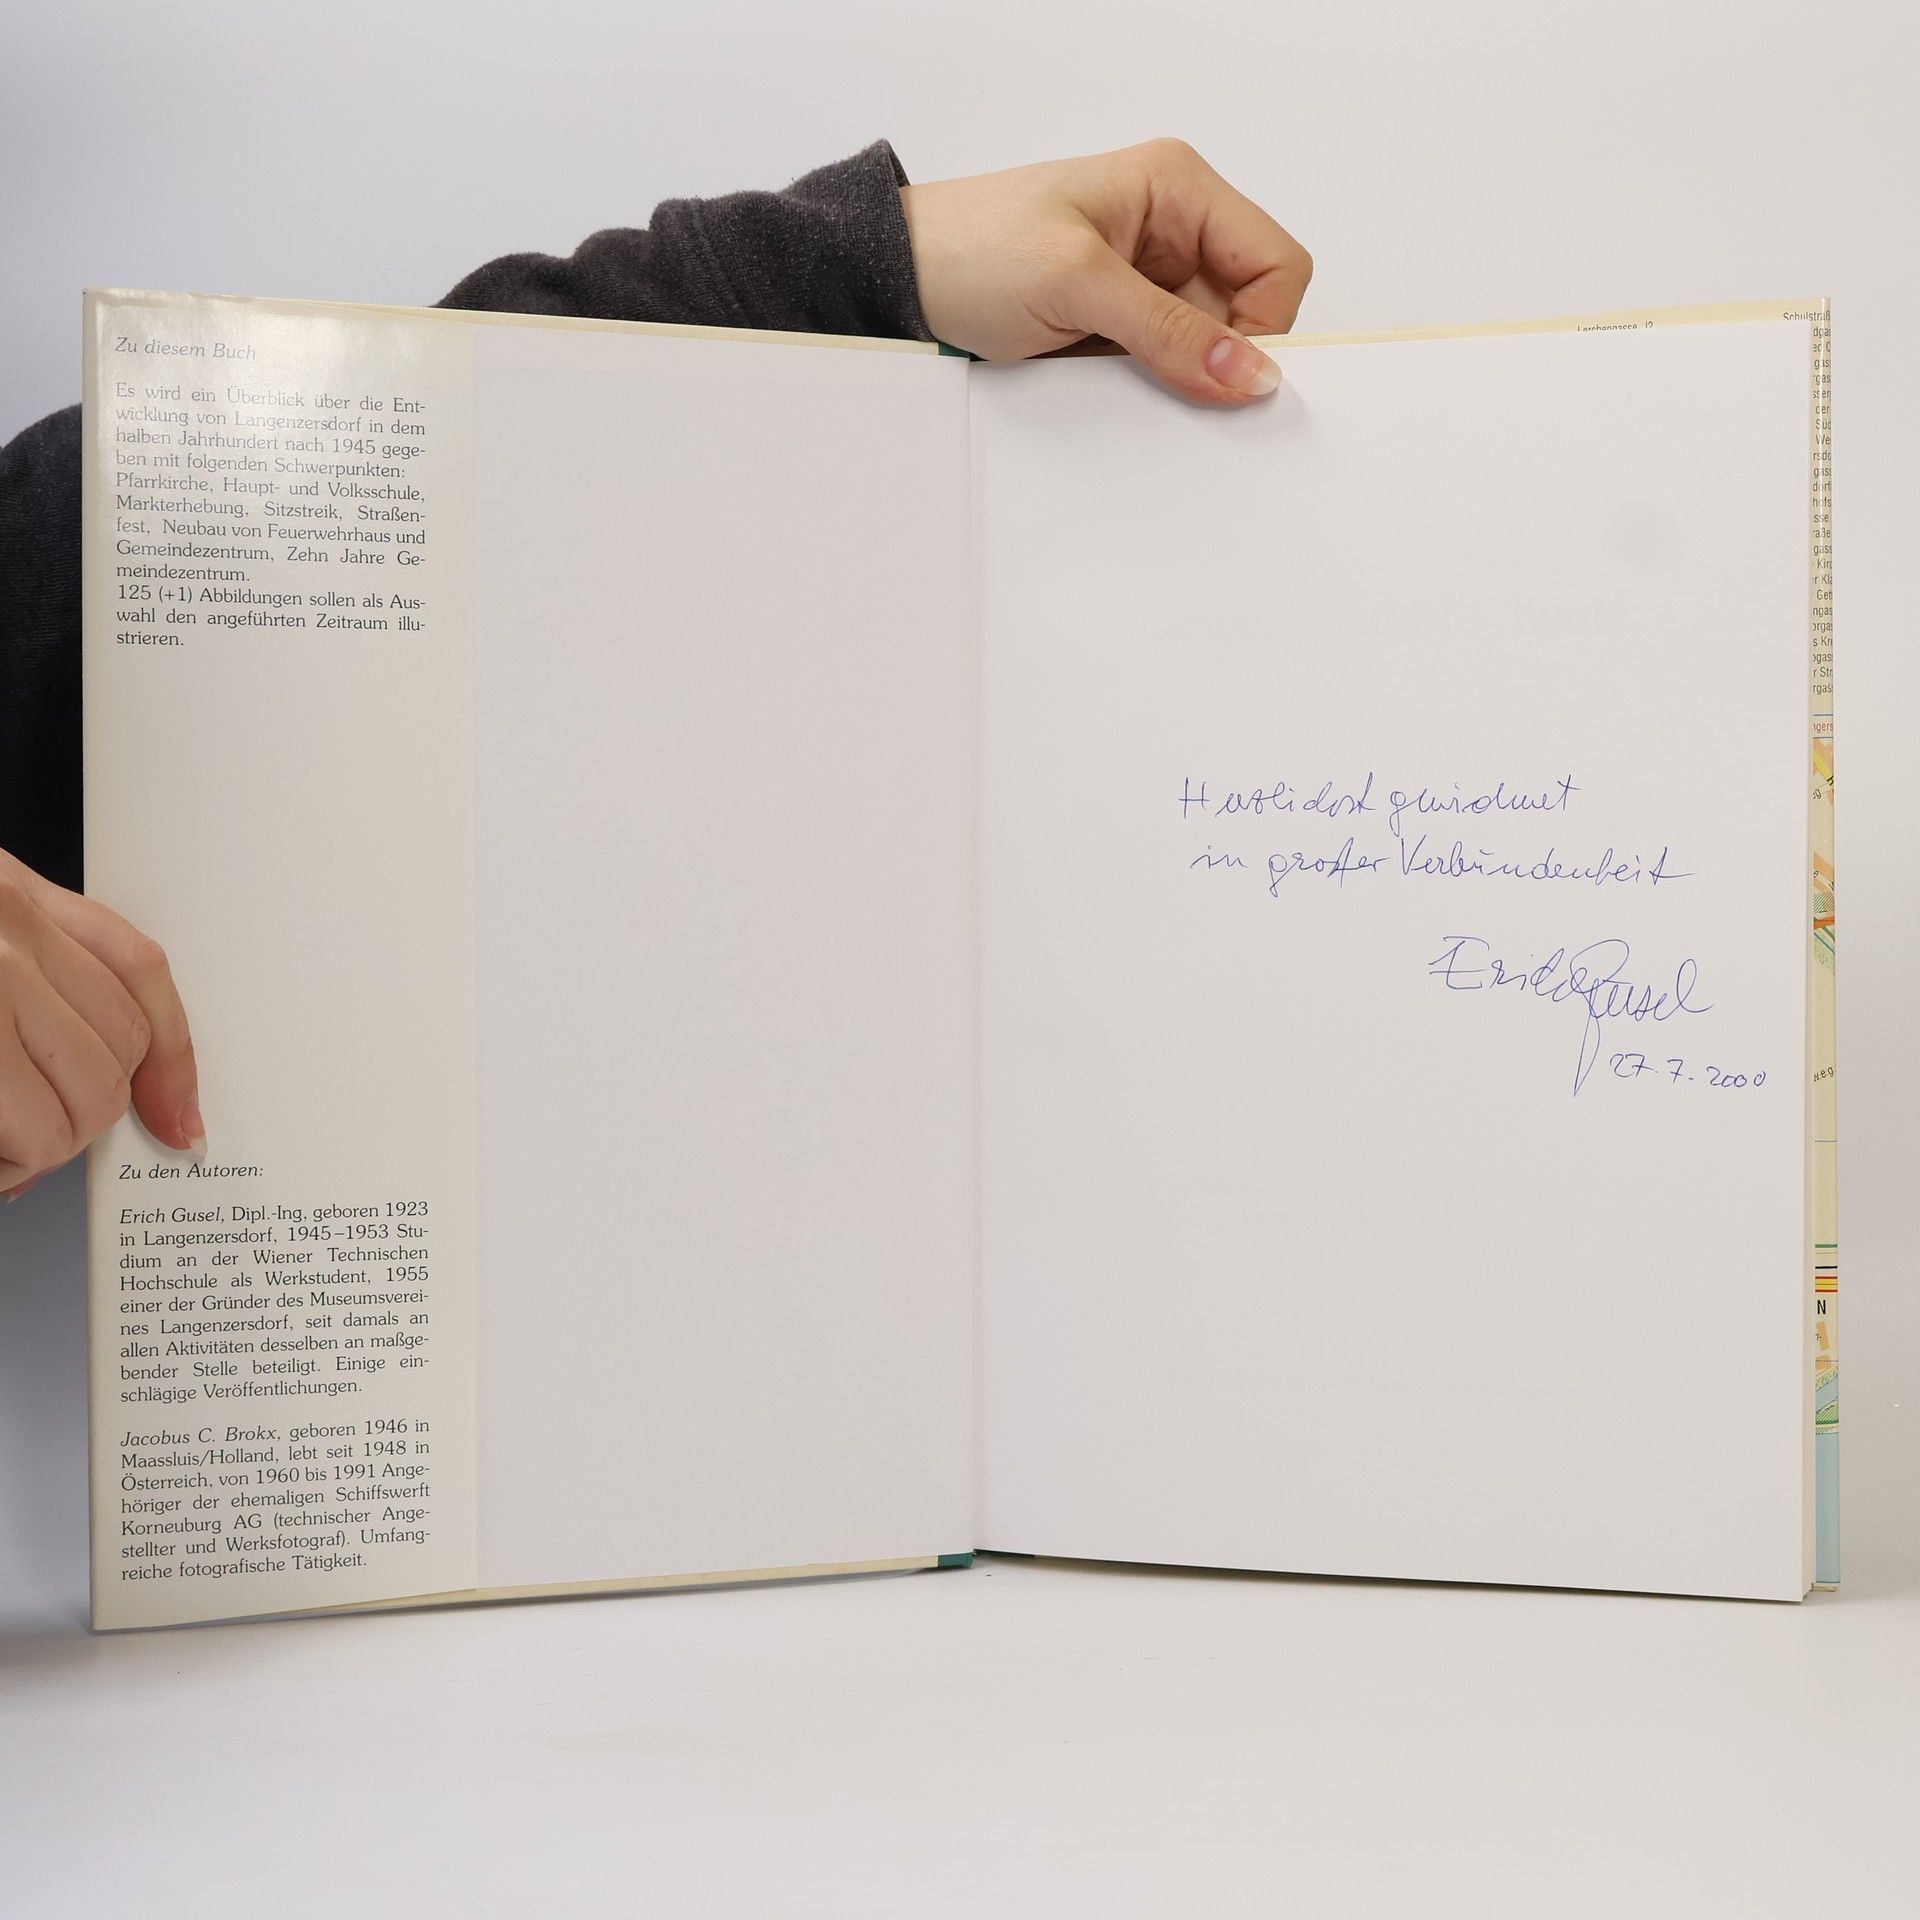 Zu diesem Buch
Es wird ein Überblick über die Ent-
wicklung von Langenzersdorf in dem
halben Jahrhundert nach 1945 gege-
ben mit folgenden Schwerpunkten:
Pfarrkirche, Haupt- und Volksschule,
Markterhebung, Sitzstreik, Straßen-
fest, Neubau von Feuerwehrhaus und
Gemeindezentrum, Zehn Jahre Ge-
meindezentrum.
125 (+1) Abbildungen sollen als Aus-
wahl den angeführten Zeitraum illu-
strieren.
Zu den Autoren:
Erich Gusel, Dipl.-Ing, geboren 1923
in Langenzersdorf, 1945–1953 Stu-
dium an der Wiener Technischen
Hochschule als Werkstudent, 1955
einer der Gründer des Museumsverei-
nes Langenzersdorf, seit damals an
allen Aktivitäten desselben an maßge-
bender Stelle beteiligt. Einige ein-
schlägige Veröffentlichungen.
Jacobus C. Brokx, geboren 1946 in
Maassluis/Holland, lebt seit 1948 in
Österreich, von 1960 bis 1991 Ange-
höriger der ehemaligen Schiffswerft
Korneuburg AG (technischer Ange-
stellter und Werksfotograf). Umfang-
reiche fotografische Tätigkeit.
Herzlichst gewidmet
in großer Verbundenheit
Erich Gusel
27.7.2000
Lerchengasse J2